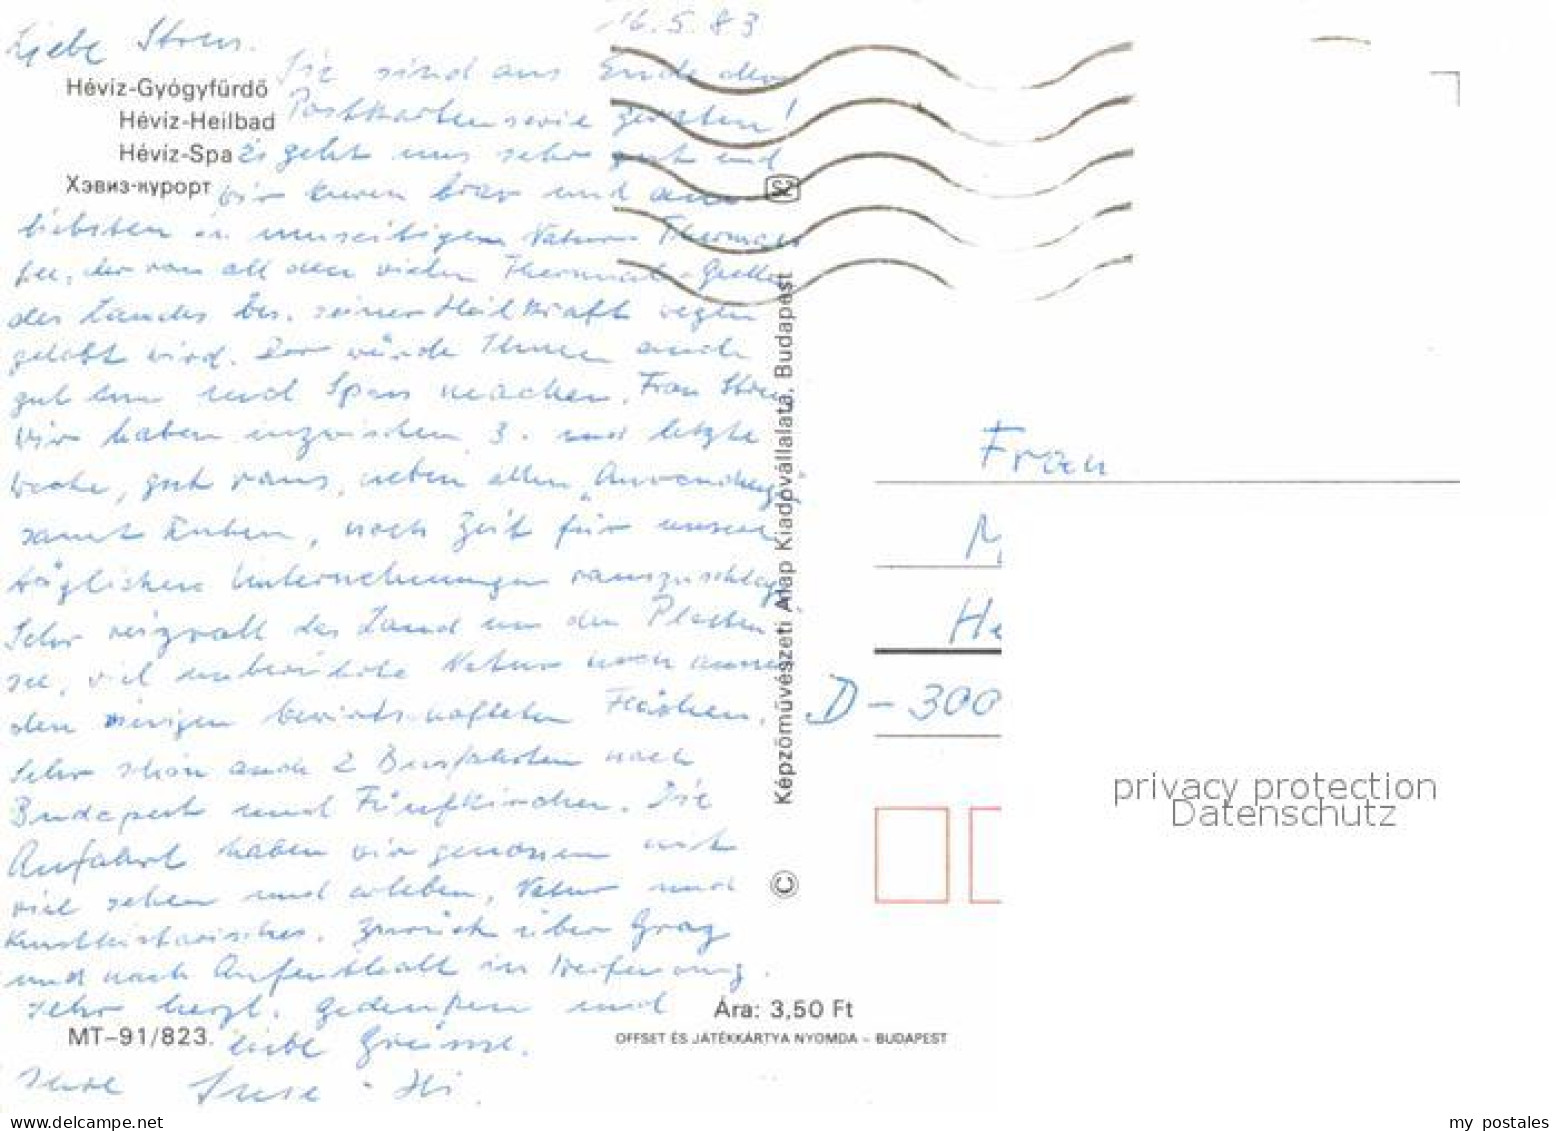 16.5.83
Liebe
Sie sind ans Ende der
Hévíz-Gyógyfürdő
Postkartenserie geraten!
Hévíz-Heilbad
Hévíz-Spa
Es geht uns sehr gut und
Хэвиз-курорт
wir kuren brav und am
SZ
liebsten in Natur-Thermal
see, der von all den vielen Thermal-Quellen
des Landes bes. seiner Heilkraft wegen
gelobt wird. Der würde Ihnen auch
gut tun und Spass machen, Frau
Wir haben inzwischen 3. und letzte
Woche, gut raus, neben allen „Anwendungen"
samt Kuren, noch Zeit für unsere
täglichen Unternehmungen rauszuschlagen.
Sehr reizvoll das Land um den Platten
see, viel unberührte Natur noch ausser
den riesigen bewirtschafteten Flächen.
Sehr schön auch 2 Busfahrten nach
Budapest und Fünfkirchen. Die
Anfahrt haben wir genossen mit
viel sehen und erleben, Natur und
Kunsthistorisches. Zurück über Graz
und nach Aufenthalt in
Sehr herzl. Gedenken und
liebe Grüsse.
MT-91/823.
Képzőművészeti Alap Kiadóvállalata, Budapest
©
Ára: 3,50 Ft
OFFSET ÉS JÁTÉKKÁRTYA NYOMDA – BUDAPEST
Frau
M
He
D-300
privacy protection
Datenschutz
www.ansichtskarten-center.de
my postales